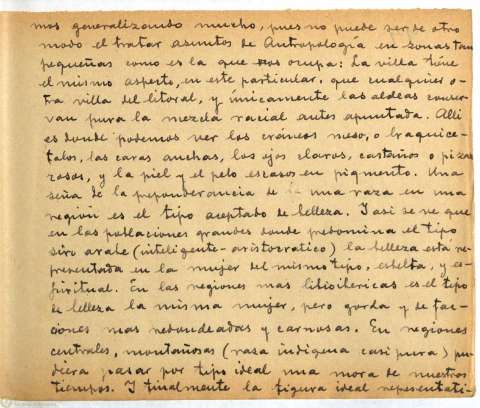 mos generalizando mucho, pues no puede ser de otro
modo el tratar asuntos de Antropología en zonas tan
pequeñas como es la que nos ocupa: La villa tiene
el mismo aspecto, en este particular, que cualquier o-
tra villa del litoral, y únicamente las aldeas conser-
van pura la mezcla racial antes apuntada. Alli
es donde podemos ver los cráneos meso, o braquice-
falos, las caras anchas, los ojos claros, castaños o pizar
rosos, y la piel y el pelo escasos en pigmento. Una
seña de la peponderancia de la una raza en una
región es el tipo aceptado de belleza. I asi se ve que
en las poblaciones grandes donde predomina el tipo
siro arabe (inteligente-aristocratico) la belleza está re-
presentada en la mujer del mismo tipo, esbelta, y es-
piritual. En las regiones mas libioibericas es el tipo
de belleza la misma mujer, pero gorda y de fac-
ciones mas redondeadas y carnosas. En regiones
centrales, montañosas (raza indigena casi pura) pu-
diera pasar por tipo ideal una mora de nuestros
tiempos. I finalmente la figura ideal representati-